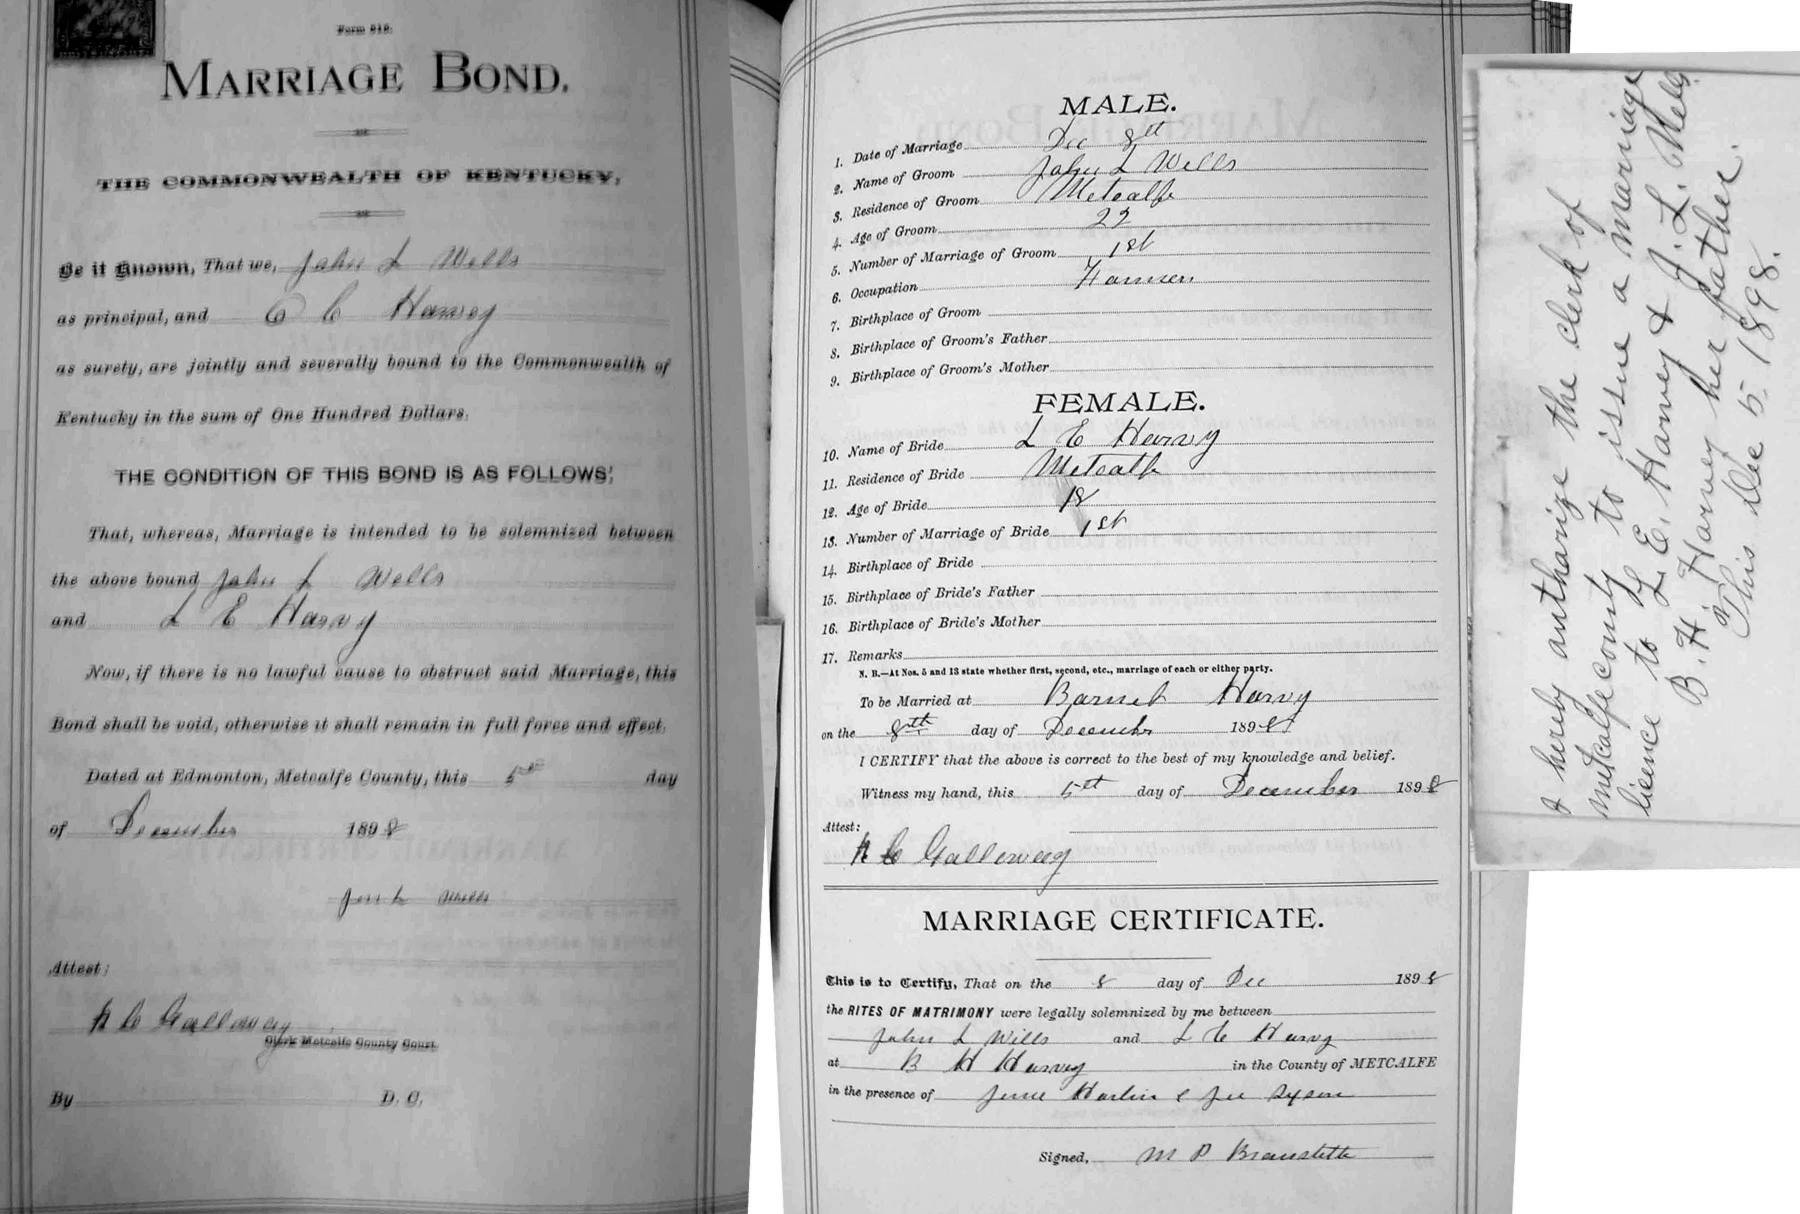 Form 818.
MARRIAGE BOND.
THE COMMONWEALTH OF KENTUCKY,
Be it Known, That we, John L Wells
as principal, and C C Harvey
as surety, are jointly and severally bound to the Commonwealth of
Kentucky in the sum of One Hundred Dollars.
THE CONDITION OF THIS BOND IS AS FOLLOWS:
That, whereas, Marriage is intended to be solemnized between
the above bound John L Wells
and L E Harvy
Now, if there is no lawful cause to obstruct said Marriage, this
Bond shall be void, otherwise it shall remain in full force and effect.
Dated at Edmonton, Metcalfe County, this 5th day
of December 1898
Jon L Wells
Attest:
Galloway
Clerk Metcalfe County Court.
By D. C.
MALE.
1. Date of Marriage Dec 8th
2. Name of Groom John L Wells
3. Residence of Groom Metcalfe
4. Age of Groom 22
5. Number of Marriage of Groom 1st
6. Occupation Farmer
7. Birthplace of Groom
8. Birthplace of Groom's Father
9. Birthplace of Groom's Mother
FEMALE.
10. Name of Bride L E Harvy
11. Residence of Bride Metcalfe
12. Age of Bride 18
13. Number of Marriage of Bride 1st
14. Birthplace of Bride
15. Birthplace of Bride's Father
16. Birthplace of Bride's Mother
17. Remarks
N. B.—At Nos. 5 and 13 state whether first, second, etc., marriage of each or either party.
To be Married at Barnet Harvy
on the 8th day of December 1898
I CERTIFY that the above is correct to the best of my knowledge and belief.
Witness my hand, this 5th day of December 1898
Attest:
Galloway
MARRIAGE CERTIFICATE.
This is to Certify, That on the 8 day of Dec 1898
the RITES OF MATRIMONY were legally solemnized by me between
John L Wells and L E Harvy
at B H Harvey in the County of METCALFE
in the presence of Jesse Harlin & Joe
Signed, M P
I hereby autharize the clerk of
metcalfe county to issue a marriage
licence to L. E. Harvey & J. L. Wells
B. H. Harvey her father.
This Dec 5. 1898.